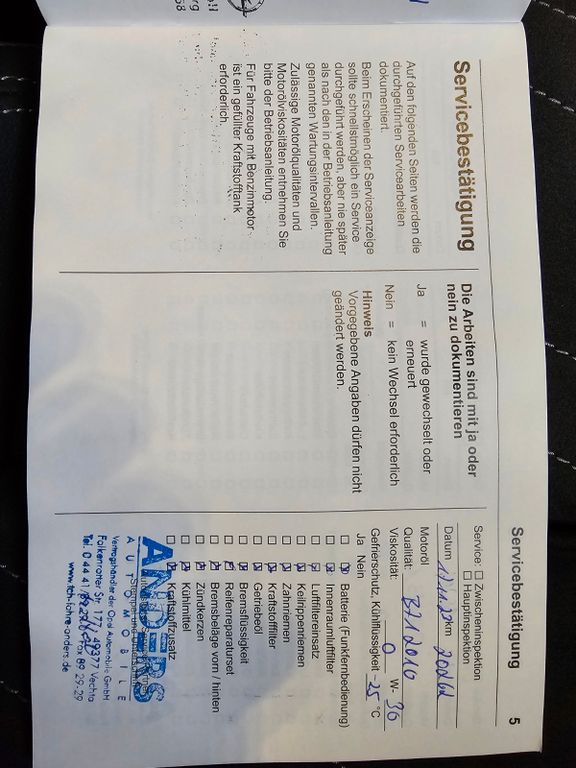 Servicebestätigung
Auf den folgenden Seiten werden die
durchgeführten Servicearbeiten
dokumentiert.
Beim Erscheinen der Serviceanzeige
sollte schnellstmöglich ein Service
durchgeführt werden, aber nie später
als nach den in der Betriebsanleitung
genannten Wartungsintervallen.
Zulässige Motorölqualitäten und
Motorölviskositäten entnehmen Sie
bitte der Betriebsanleitung.
Für Fahrzeuge mit Benzinmotor
ist ein gefüllter Kraftstofftank
erforderlich.
Die Arbeiten sind mit ja oder
nein zu dokumentieren
Ja = wurde gewechselt oder
erneuert
Nein = kein Wechsel erforderlich
Hinweis
Vorgegebene Angaben dürfen nicht
geändert werden.
Servicebestätigung 5
Service: Zwischeninspektion
Hauptinspektion
Datum km
Motoröl
Qualität:
Viskosität: 0 W- 30
Gefrierschutz, Kühlflüssigkeit -25 °C
Ja Nein
Batterie (Funkfernbedienung)
Innenraumluftfilter
Luftfiltereinsatz
Keilrippenriemen
Zahnriemen
Kraftstofffilter
Getriebeöl
Bremsflüssigkeit
Reifenreparaturset
Bremsbeläge vorn / hinten
Zündkerzen
Kühlmittel
Kraftstoffzusatz
ANDERS
AUTOMOBILE
Vertragshändler der Opel Automobile GmbH
Falkenrotter Str. 177, 49377 Vechta
Tel. 0 44 41 Fax 89 29-29